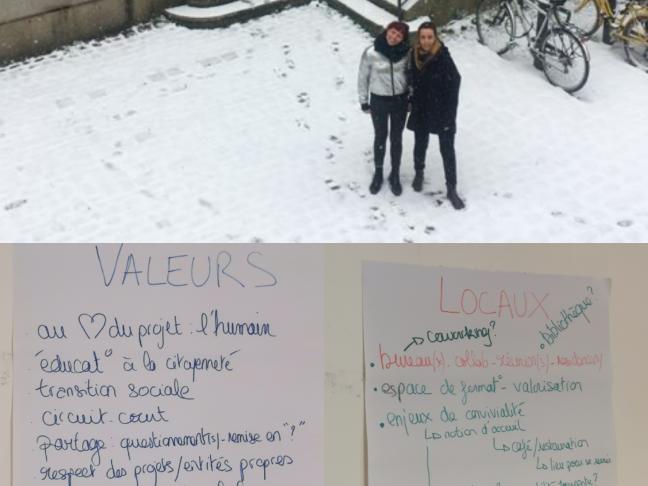 VALEURS
au ♡ du projet : l'humain
éducat° à la citoyenneté
transition sociale
circuit-court
partage - questionnement(s) - remise en "?"
respect des projets/entités propres
LOCAUX
coworking?
• bibliothèque?
• bureau(s) - collab - réunion(s) - résidence(s)
• espace de format° - valorisation
• enjeux de convivialité
↳ notion d'accueil
↳ café/restauration
↳ lieu pour se